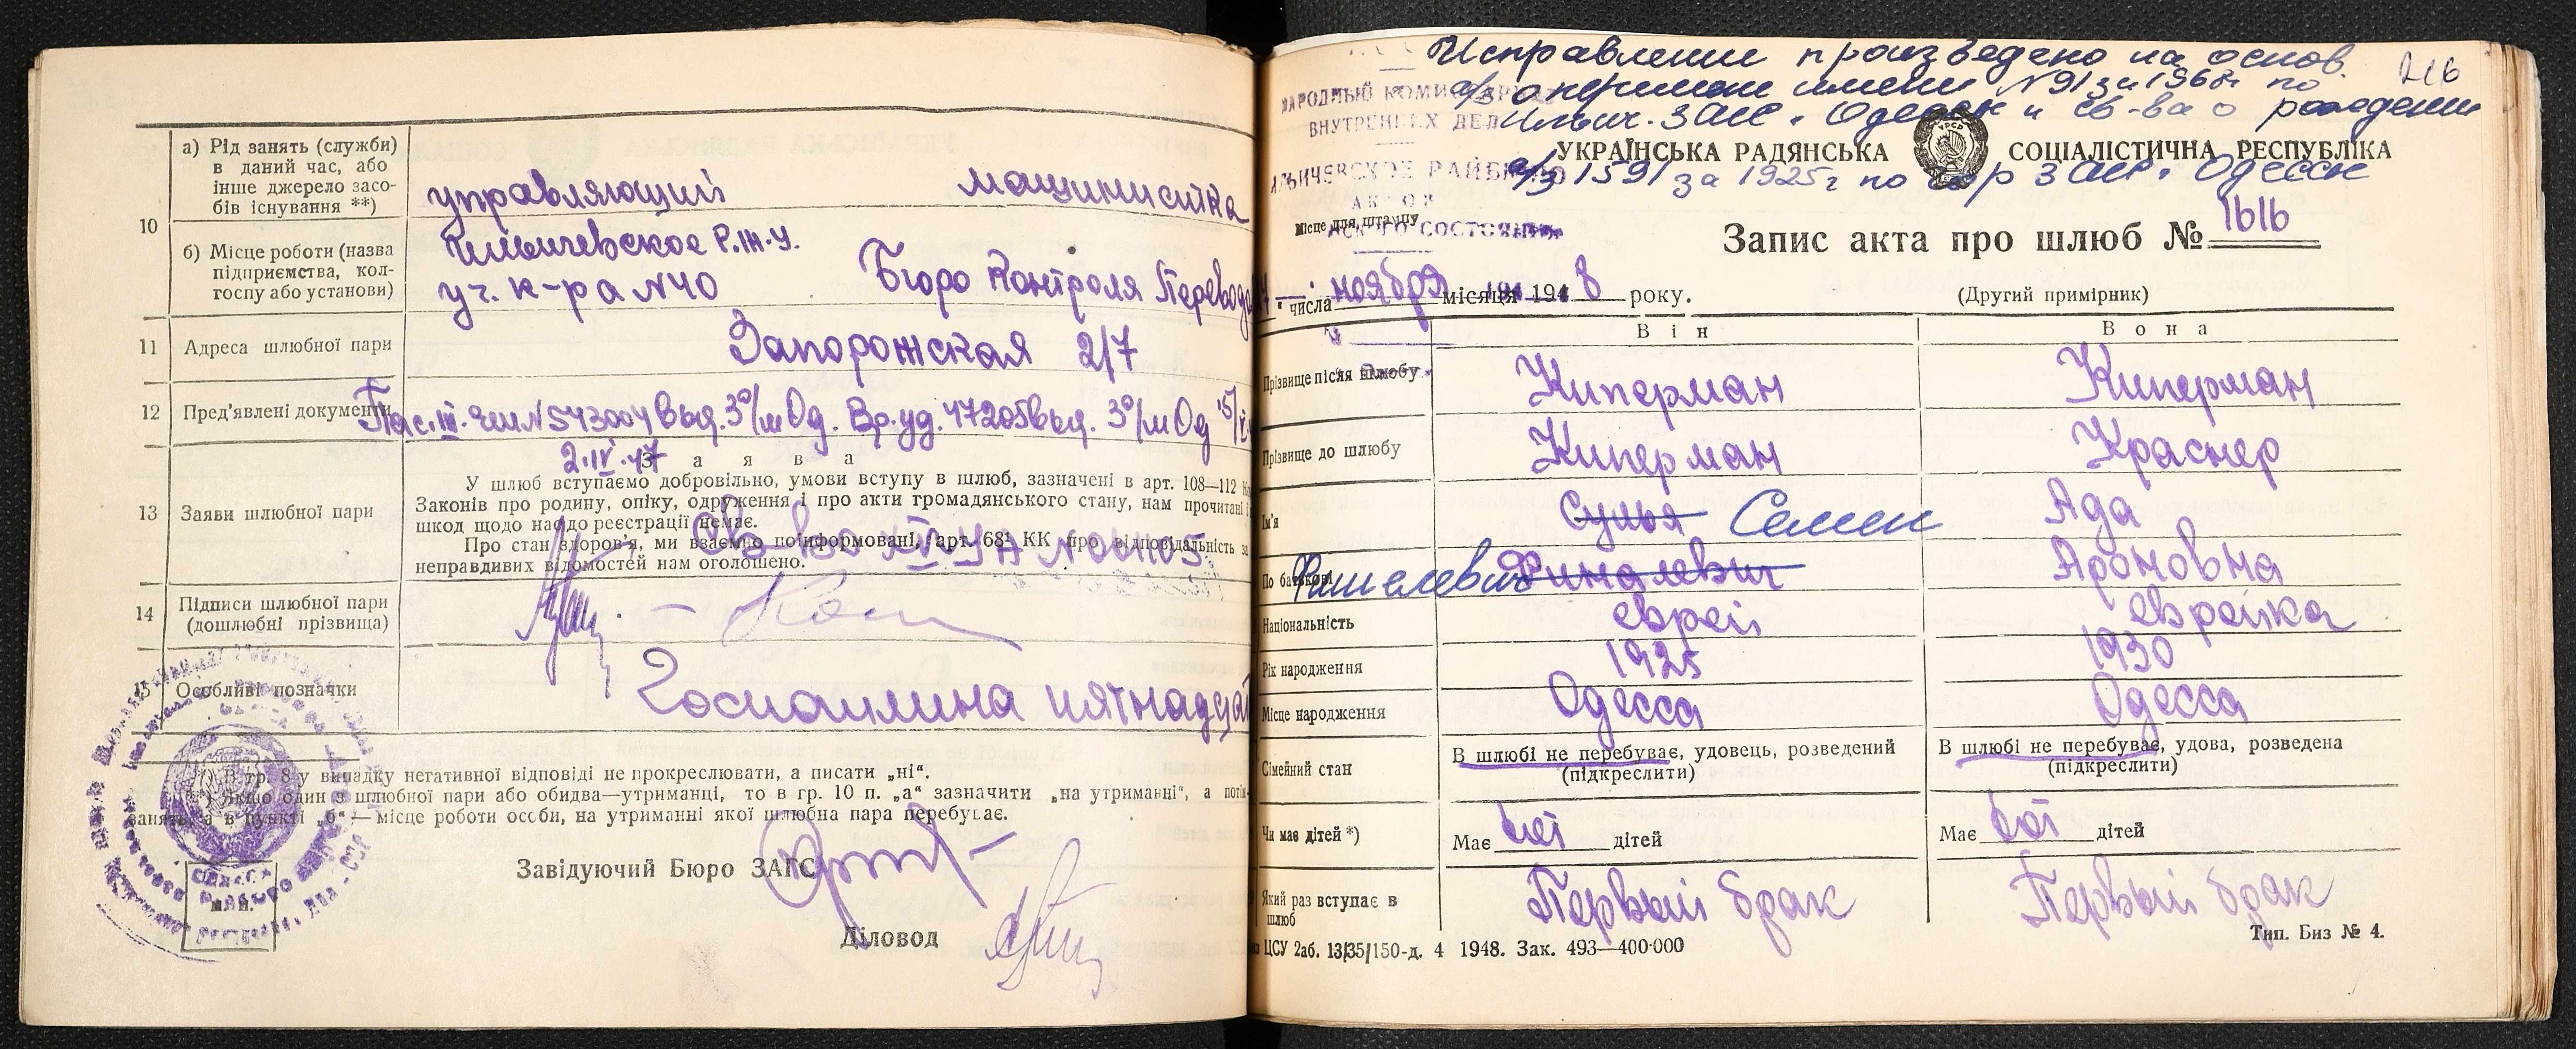 10
а) Рід занять (служби)
в даний час, або
інше джерело засо-
бів існування **)
управляющий машинистка
б) Місце роботи (назва
підприємства, кол-
госпу або установи)
Ильичевское Р.Ж.У.
уч. к-ра №40 Бюро Контроля Перевода
11 Адреса шлюбної пари Запорожская 2/7
12 Пред'явлені документи Пас. III. №543004 выд. 3°/м Од. Вр. уд. 47205 выд. 3°/м Од 15/
2.IV.47
З а я в а
13 Заяви шлюбної пари
У шлюб вступаємо добровільно, умови вступу в шлюб, зазначені в арт. 108—112
Законів про родину, опіку, одруження і про акти громадянського стану, нам прочитані і
шкод щодо нас до реєстрації немає.
Про стан здоров'я, ми взаємно поінформовані, арт. 68¹ КК про відповідальність за
неправдивих відомостей нам оголошено.
Св-во
14 Підписи шлюбної пари
(дошлюбні прізвища)
15 Особливі позначки
Госпошлина пятнадцат
*) В гр. 8 у випадку негативної відповіді не прокреслювати, а писати „ні“.
**) Якщо один з шлюбної пари або обидва—утриманці, то в гр. 10 п. „а“ зазначити „на утриманні“, а потім
занять, а в пункті „б“ — місце роботи особи, на утриманні якої шлюбна пара перебуває.
Завідуючий Бюро ЗАГС
М. П.
Діловод
Исправление произведено на основ.
а/з о перемене имени №91 за 1968г по
Ильич. ЗАГС г. Одессы и св-ва о рождении
а/з 1591 за 1925г по гор ЗАГС г. Одессы
216
НАРОДНЫЙ КОМИССАРИАТ
ВНУТРЕННИХ ДЕЛ
ИЛЬИЧЕВСКОЕ РАЙБЮРО
АКТОВ
СОСТОЯНИЯ
Місце для штампу
УКРАЇНСЬКА РАДЯНСЬКА СОЦІАЛІСТИЧНА РЕСПУБЛІКА
УРСР
Запис акта про шлюб № 1616
числа ноября місяця 1948 року.
(Другий примірник)
Він Вона
Прізвище після шлюбу Киперман Киперман
Прізвище до шлюбу Киперман Краснер
Ім'я Сулья Семен Ада
По батькові Фишелевич Финалевич Ароновна
Національність еврей еврейка
Рік народження 1925 1930
Місце народження Одесса Одесса
Сімейний стан
В шлюбі не перебуває, удовець, розведений
(підкреслити)
В шлюбі не перебуває, удова, розведена
(підкреслити)
Чи має дітей *) Має дітей Має дітей
Який раз вступає в
шлюб
Первый брак Первый брак
ЦСУ 2аб. 13/35/150-д. 4 1948. Зак. 493—400·000
Тип. Биз № 4.